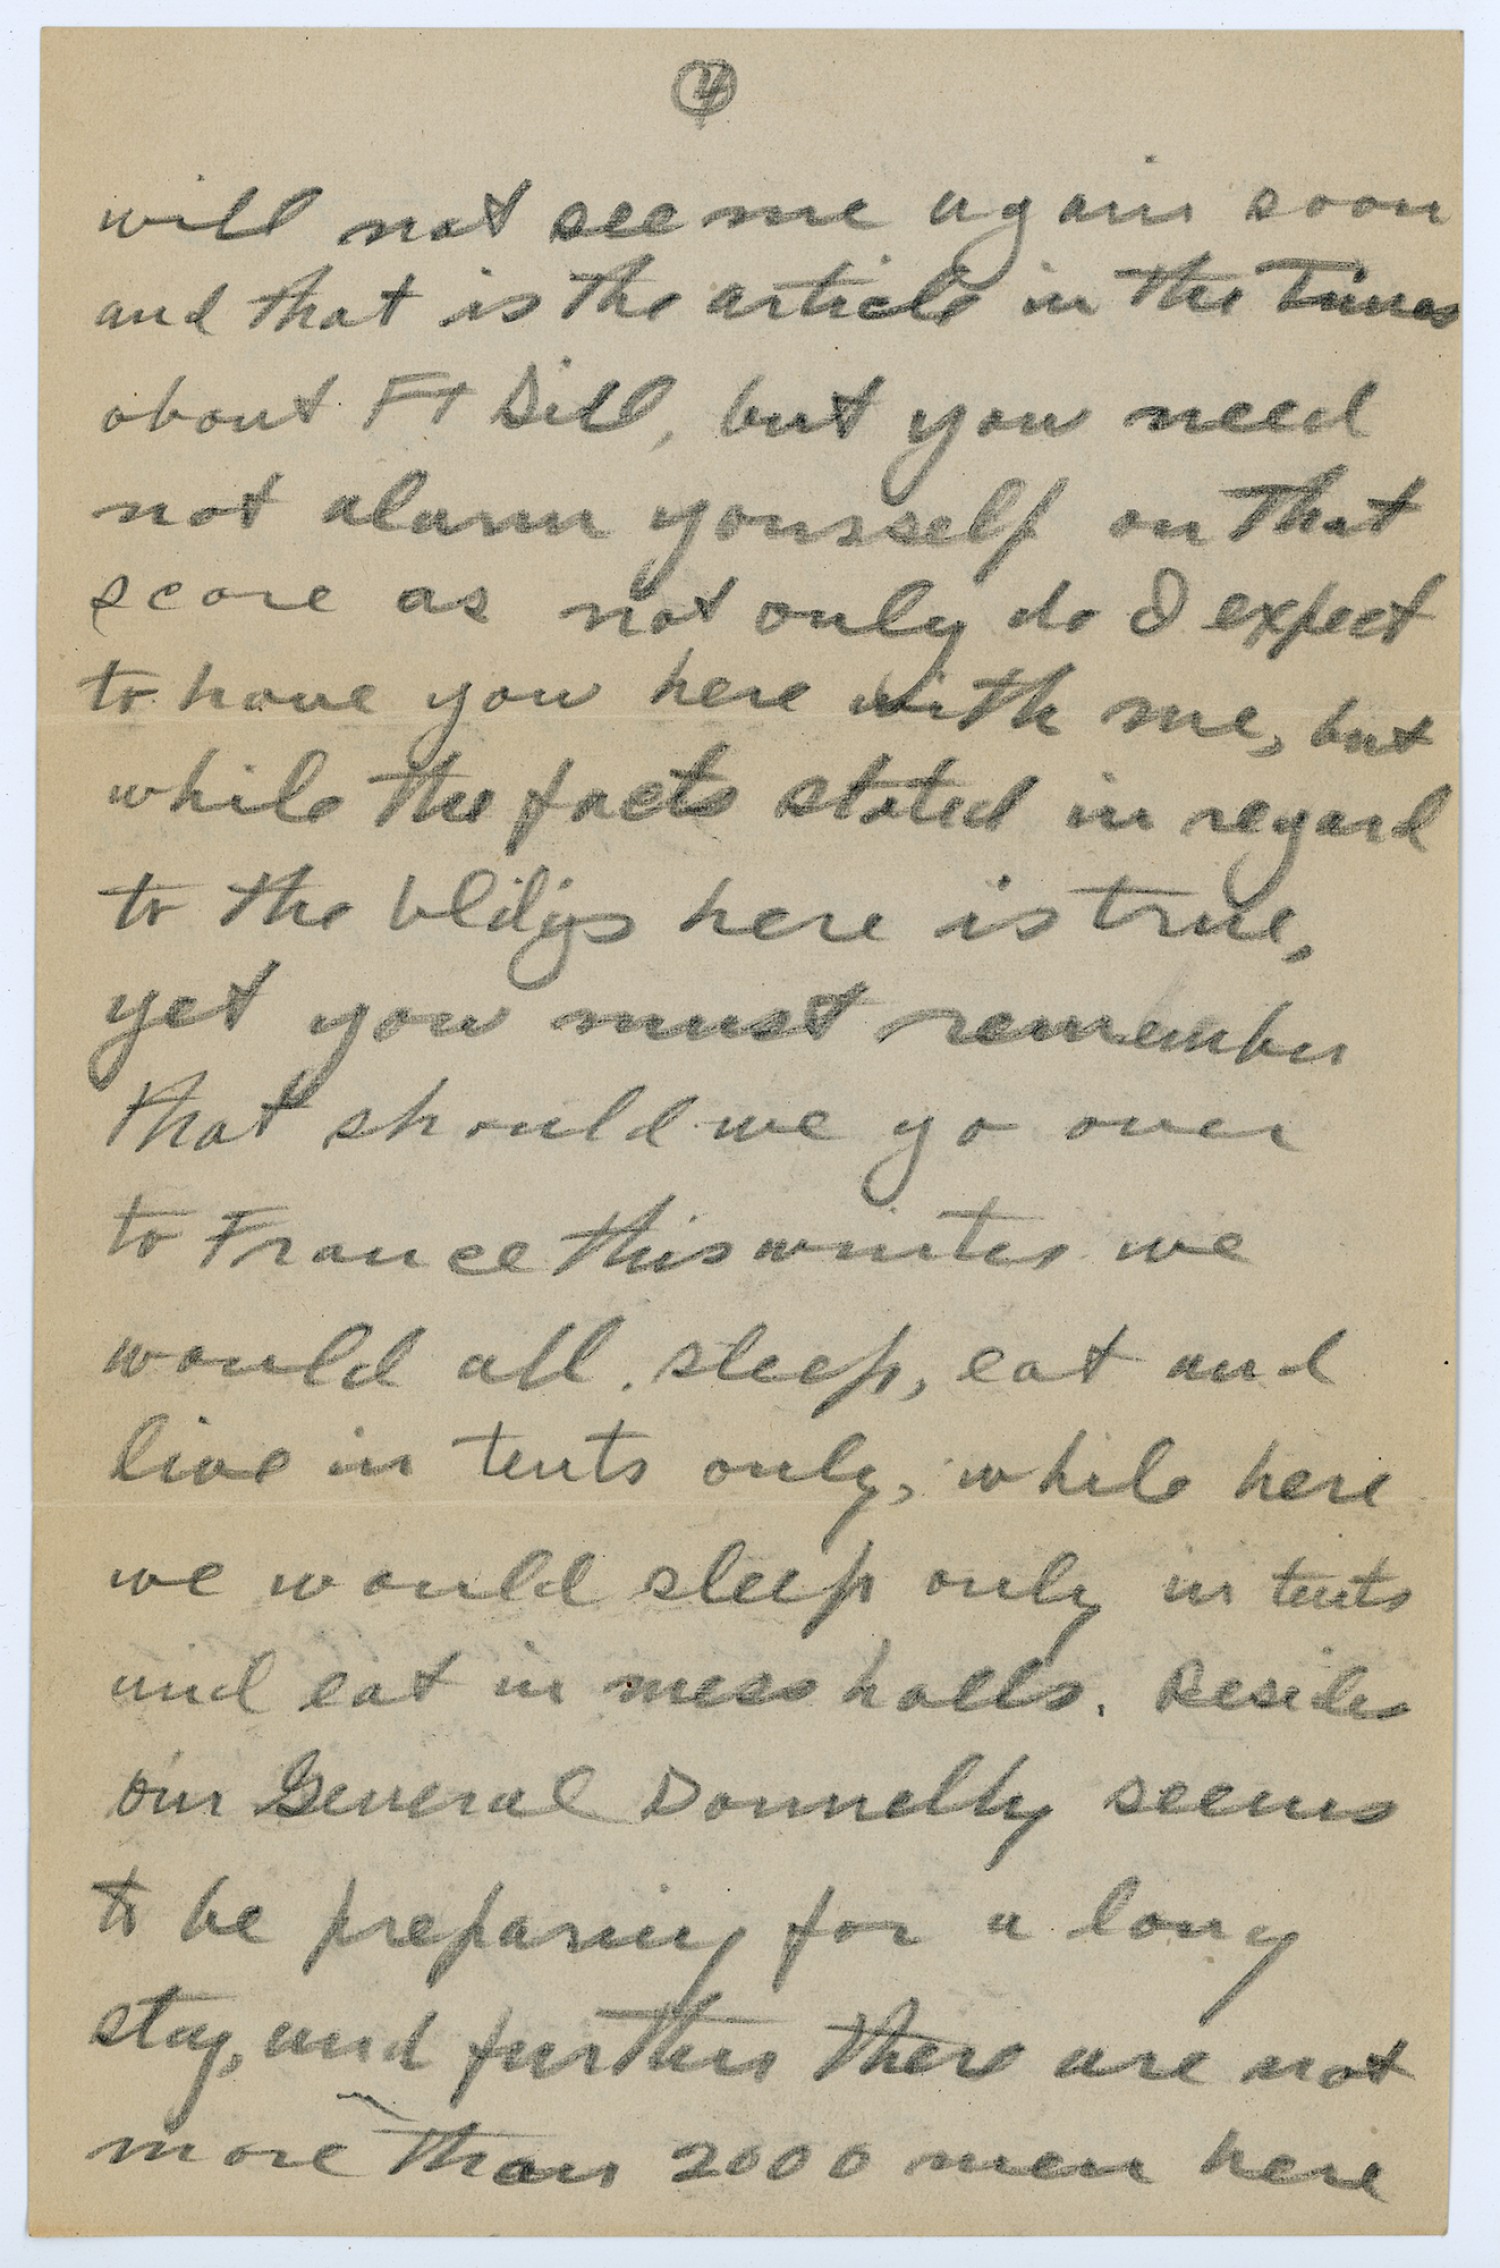 4
will not see me again soon
and that is the article in the Times
about Ft Sill, but you need
not alarm yourself on that
score as not only do I expect
to have you here with me, but
while the facts stated in regard
to the bldigs here is true,
yet you must remember
that should we go over
to France this winter we
would all sleep, eat and
live in tents only, while here
we would sleep only in tents
and eat in mess halls. Besides
our General Donnelly seems
to be preparing for a long
stay, and further there are not
more than 2000 men here